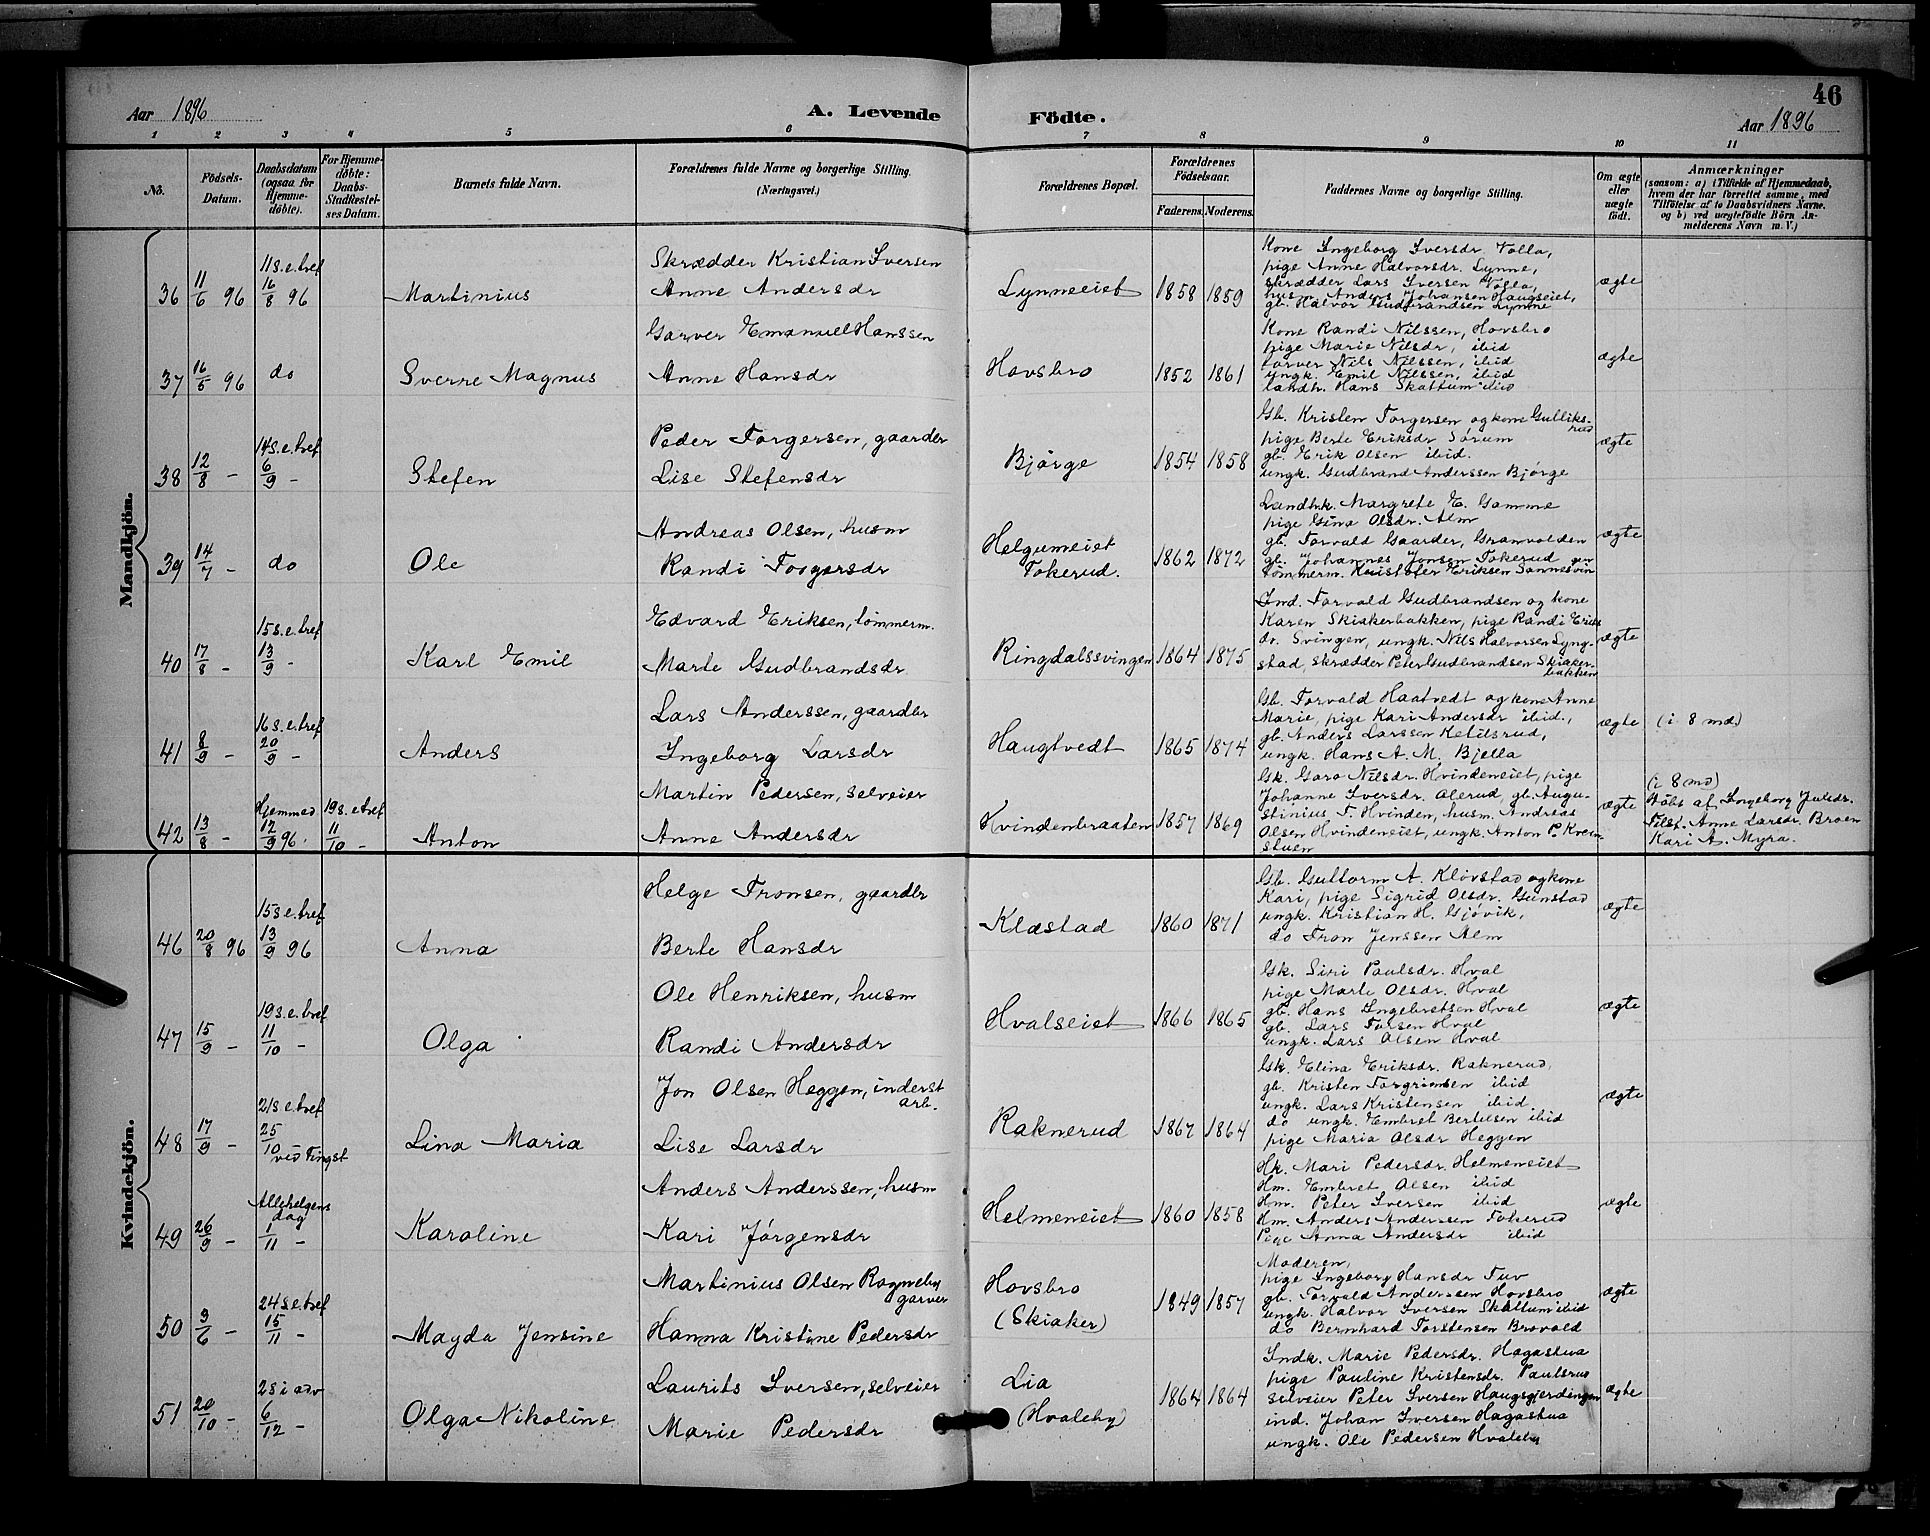 46
Aar 1896
A. Levende
Födte.
Aar 1896
1 2 3 4 5 6 7 8 9 10 11
No.
Födsels-Datum.
Daabsdatum (ogsaa for Hjemme-döbte).
For Hjemme-döbte: Daabs-Stadfæstel-ses Datum.
Barnets fulde Navn.
Forældrenes fulde Navne og borgerlige Stilling.
(Næringsvei.)
Forældrenes Bopæl.
Forældrenes Födselsaar.
Faderens. Moderens.
Faddernes Navne og borgerlige Stilling.
Om ægte eller uægte födt.
Anmærkninger
(saasom: a) i Tilfælde af Hjemmedaab,
hvem der har forrettet samme, med
Tilföielse af to Daabsvidners Navne.
og b) ved uægtefödte Börn An-
melderens Navn m. V.)
Mandkjön.
36 11/6 96
11 s. e. tref
16/8 96
Martinius
Skrædder Kristian Iversen
Anne Andersdr
Lynneeiet
1858 1859
Kone Ingeborg Iversdr. Volla,
pige Anne Halvorsdr. Lynne,
skrædder Lars Iversen Volla,
husm. Anders Johansen Haugseiet,
gb. Halvor Gudbrandsen Lynne
ægte
37 16/5 96
do
Sverre Magnus
Garver Emanuel Hanssen
Anne Hansdr
Hovsbro
1852 1861
Kone Randi Nilssen, Hovsbro
pige Marie Nilsdr, ibid
farver Nils Nilssen, ibid
ungk. Emil Nilssen, ibid
landh. Hans Skattum ibid
ægte
38 12/8 -
14 s. e. tref
6/9 -
Stefen
Peder Torgersen, gaardbr
Lise Stefensdr
Bjørge
1854 1858
Gb. Kristen Torgersen og kone Gulliks-
rud
pige Berte Eriksdr Sørum
gb. Erik Olsen ibid.
ungk. Gudbrand Anderssen Bjørge
ægte
39 14/7 -
do
Ole
Andreas Olsen, husm
Randi Torgersdr
Helgumeiet
Tokerud.
1862 1872
Landhk. Margrete E. Gamme
pige Gina Olsdr. Alm
gb. Torvald Gaarder, Granvolden
gb. Johannes Jonsen Tokerud
tømmerm. Kristofer Eriksen Sannesvin
gen
ægte
40 17/8 -
15 s. e. tref
13/9 -
Karl Emil
Edvard Eriksen, tømmerm.
Marte Gudbrandsdr
Ringdalssvingen
1864 1875
Ind. Torvald Gudbrandsen og kone
Karen Skiakerbakken, pige Randi Eriks
dr. Svingen, ungk. Nils Halvorsen Lyng-
stad, skrædder Peter Gudbrandsen Skiaker-
bakken
ægte
41 8/9 -
16 s. e. tref
20/9 -
Anders
Lars Anderssen, gaardbr
Ingeborg Larsdr
Haugtvedt
1865 1874
Gb. Torvald Haatvedt og kone Anne
Marie, pige Kari Andersdr ibid.,
gb. Anders Larssen Ketilsrud,
ungk. Hans A. M. Bjella
ægte
(i 8 md.)
42 13/8 -
Hjemmed
12/9 96.
19 s. e. tref
11/10 -
Anton
Martin Pedersen, selveier
Anne Andersdr
Hvindenbraaten
1857 1869
Gk. Goro Nilsdr. Hvindeneiet, pige
Johanne Iversdr. Alerud, gb. Augu-
stinius T. Hvinden, husm. Andreas
Olsen Hvindeneiet, ungk. Anton P. Kvern-
stuen
ægte
(i 8 md)
Døbt af Ingeborg Julsdr.
Tilst. Anne Larsdr. Braen
Kari A. Myra.
Kvindekjön.
46 20/8 96
15 s. e. tref
13/9 96
Anna
Helge Tronsen, gaardbr
Berte Hansdr
Klæstad
1860 1871
Gb. Guttorm A. Kløvstad og kone
Kari, pige Sigrid Olsdr. Gunstad
ungk. Kristian H. Gjøvik,
do Tron Jenssen Alm
ægte
47 15/9 -
19 s. e. tref
11/10 -
Olga
Ole Henriksen, husm
Randi Andersdr
Hvalseiet
1866 1865
Gk. Siri Paulsdr. Hval
pige Marte Olsdr. Hval
gb. Hans Ingebretsen Hval
gb. Lars Torsen Hval
ungk. Lars Olsen Hval
ægte
48 17/9 -
21 s. e. tref
25/10 -
ved Tingst
Lina Maria
Jon Olsen Heggen, inderst
arb.
Lise Larsdr
Raknerud
1867 1864
Gk. Elina Eriksdr. Raknerud,
gb. Kristen Torgrimsen ibid
ungk. Lars Kristensen ibid
do ungk. Embret Bertelsen ibid
pige Maria Olsdr Heggen
ægte
49 26/9 -
Allehelgens
dag
1/11 -
Karoline
Anders Anderssen, husm
Kari Jørgensdr
Helmeneiet
1860 1858
Hk. Mari Pedersdr. Helmeneiet
Hm. Embret Olsen ibid
Hm. Peter Iversen ibid
Hm. Anders Anderssen Tokerud
Pige Anna Andersdr ibid
ægte
50 3/6 -
24 s. e. tref
15/11 -
Magda Jensine
Martinius Olsen Rognneby
garver
Hanna Kristine Pedersdr
Hovsbro
(Skiaker)
1849 1857
Moderen,
pige Ingeborg Hansdr Tuv
gb. Torvald Anderssen Hovsbro
ungk. Halvor Iversen Skattum ibid
do Bernhard Torstensen Brovold
ægte
51 20/10 -
2 s i adv
6/12 -
Olga Nikoline
Laurits Iversen, selveier
Marie Pedersdr
Lia
(Hvaleby)
1864 1864
Indk. Marie Pedersdr. Hagastua
pige Pauline Kristensdr. Paulsrud
selveier Peter Iversen Haugsgjerdingen
ind. Johan Iversen Hagastua
ungk. Ole Pedersen Hvaleby
ægte